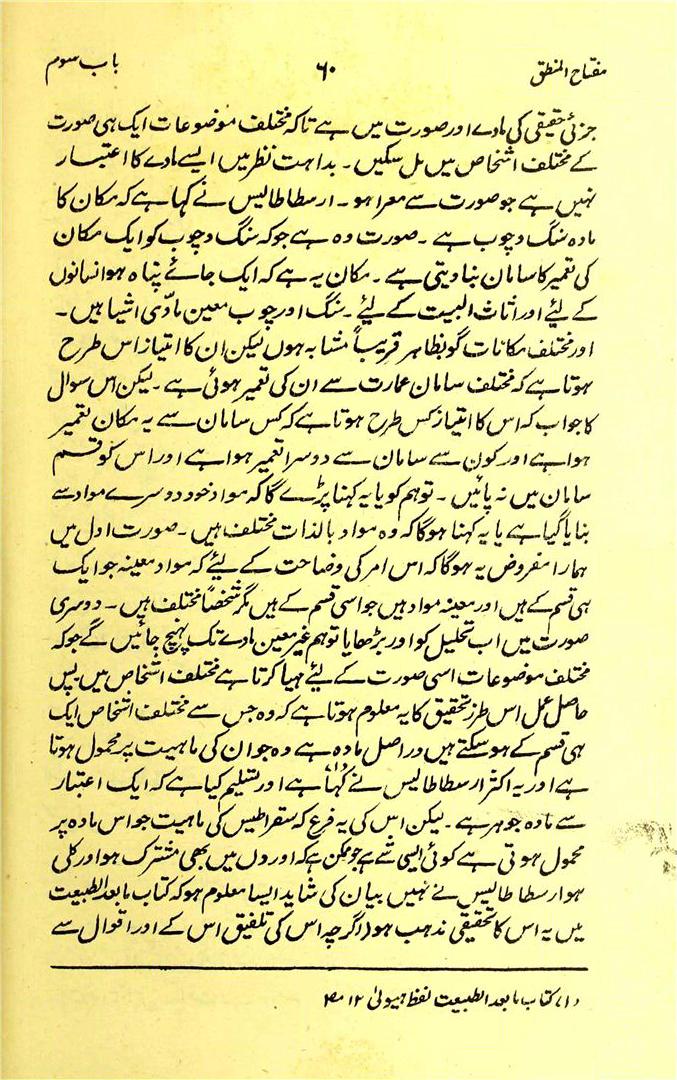 مفتاح المنطق ۶۰ باب سوم
جزئی حقیقی کی مادے اور صورت میں ہے تاکہ مختلف موضوعات ایک ہی صورت
کے مختلف اشخاص میں مل سکیں۔ بداہت نظر میں ایسے مادے کا اعتبار
نہیں ہے جو صورت سے معرا ہو۔ ارسطاطالیس نے کہا ہے کہ مکان کا
مادہ سنگ و چوب ہے۔ صورت وہ ہے جو کہ سنگ و چوب کو ایک مکان
کی تعمیر کا سامان بنا دیتی ہے۔ مکان یہ ہے کہ ایک جائے پناہ ہو انسانوں
کے لیئے اور اثاث البیت کے لیئے۔ سنگ اور چوب معین مادّی اشیا ہیں۔
اور مختلف مکانات گو بظاہر قریباً مشابہ ہوں لیکن ان کا امتیاز اس طرح
ہوتا ہے کہ مختلف سامان عمارت سے ان کی تعمیر ہوئی ہے۔ لیکن اس سوال
کا جواب کہ اس کا امتیاز کس طرح ہوتا ہے کہ کس سامان سے یہ مکان تعمیر
ہوا ہے اور کون سے سامان سے دوسرا تعمیر ہوا ہے اور اس کو قسم
سامان میں نہ پائیں۔ تو ہم کو یا یہ کہنا پڑے گا کہ مواد خود دوسرے مواد سے
بنایا گیا ہے یا یہ کہنا ہوگا کہ وہ مواد بالذات مختلف ہیں۔ صورت اول میں
ہمارا مفروض یہ ہوگا کہ اس امر کی وضاحت کے لیئے کہ مواد معینہ جو ایک
ہی قسم کے ہیں اور معینہ مواد ہیں جو اسی قسم کے ہیں مگر شخصاً مختلف ہیں۔ دوسری
صورت میں اب تحلیل کو اور بڑھایا تو ہم غیر معین مادے تک پہنچ جائیں گے جو کہ
مختلف موضوعات اسی صورت کے لیئے مہیا کرتا ہے مختلف اشخاص میں پس
حاصل عمل اس طرز تحقیق کا یہ معلوم ہوتا ہے کہ وہ جس سے مختلف اشخاص ایک
ہی قسم کے ہو سکتے ہیں در اصل مادہ ہے وہ جو ان کی ماہیت پر محمول ہوتا
ہے اور یہ اکثر ارسطاطالیس نے کہا(۱) ہے اور تسلیم کیا ہے کہ ایک اعتبار
سے مادہ جوہر ہے۔ لیکن اس کی یہ فرع کہ سقراطیس کی ماہیت جو اس مادہ پر
محمول ہوتی ہے کوئی ایسی شے ہے جو ممکن ہے کہ اوروں میں بھی مشترک ہو اور کلی
ہو ارسطاطالیس نے نہیں بیان کی شاید ایسا معلوم ہو کہ کتاب ما بعد الطبیعت
میں یہ اس کا تحقیقی مذہب ہو (اگرچہ اس کی تلفیق اس کے اور اقوال سے
(۱) کتاب ما بعد الطبیعت لفظ ہیولیٰ ۱۲